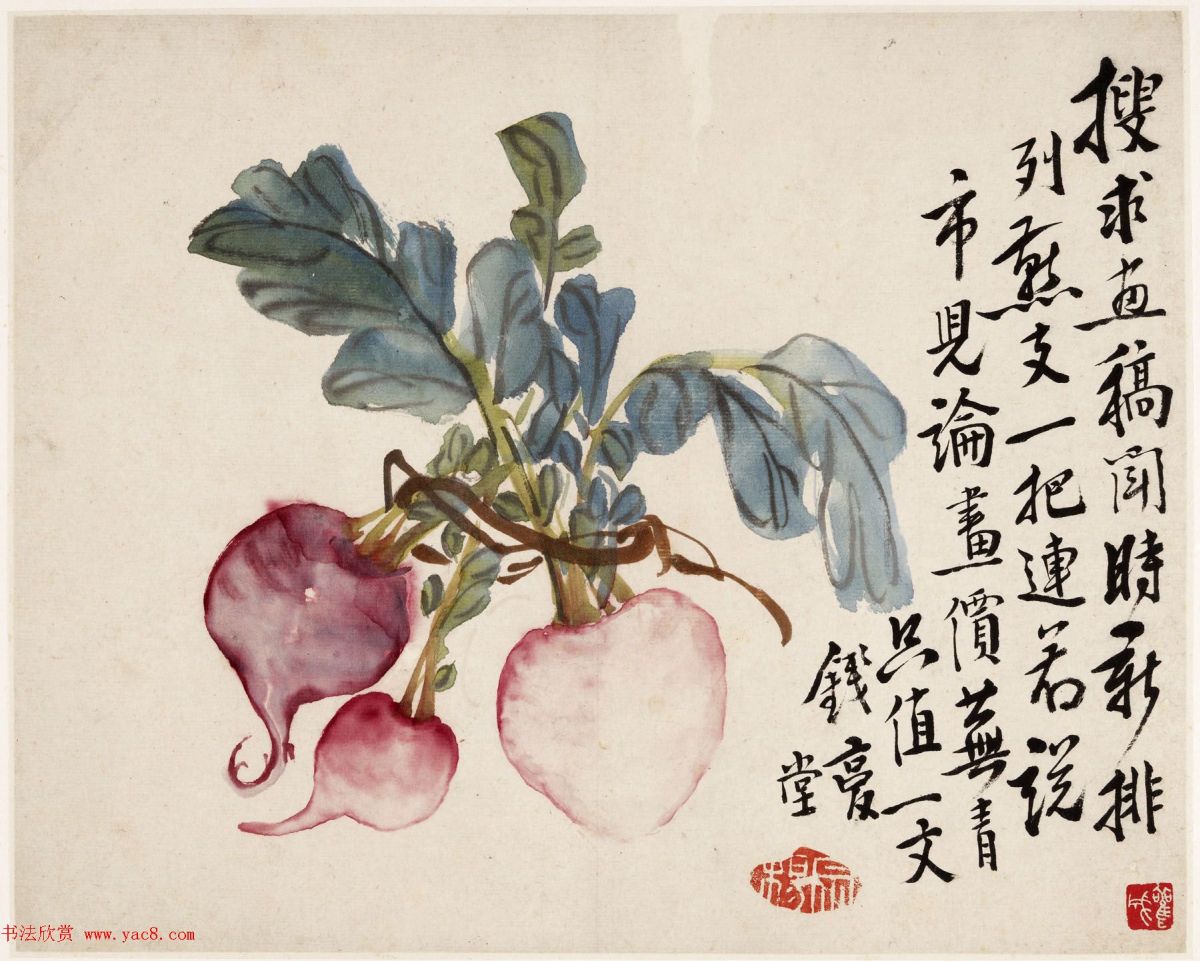 搜求画稿時新排
列燕支一把連若説
市児論畫價蕪青
只值一文
錢
堂
书法欣赏 www.yac8.com